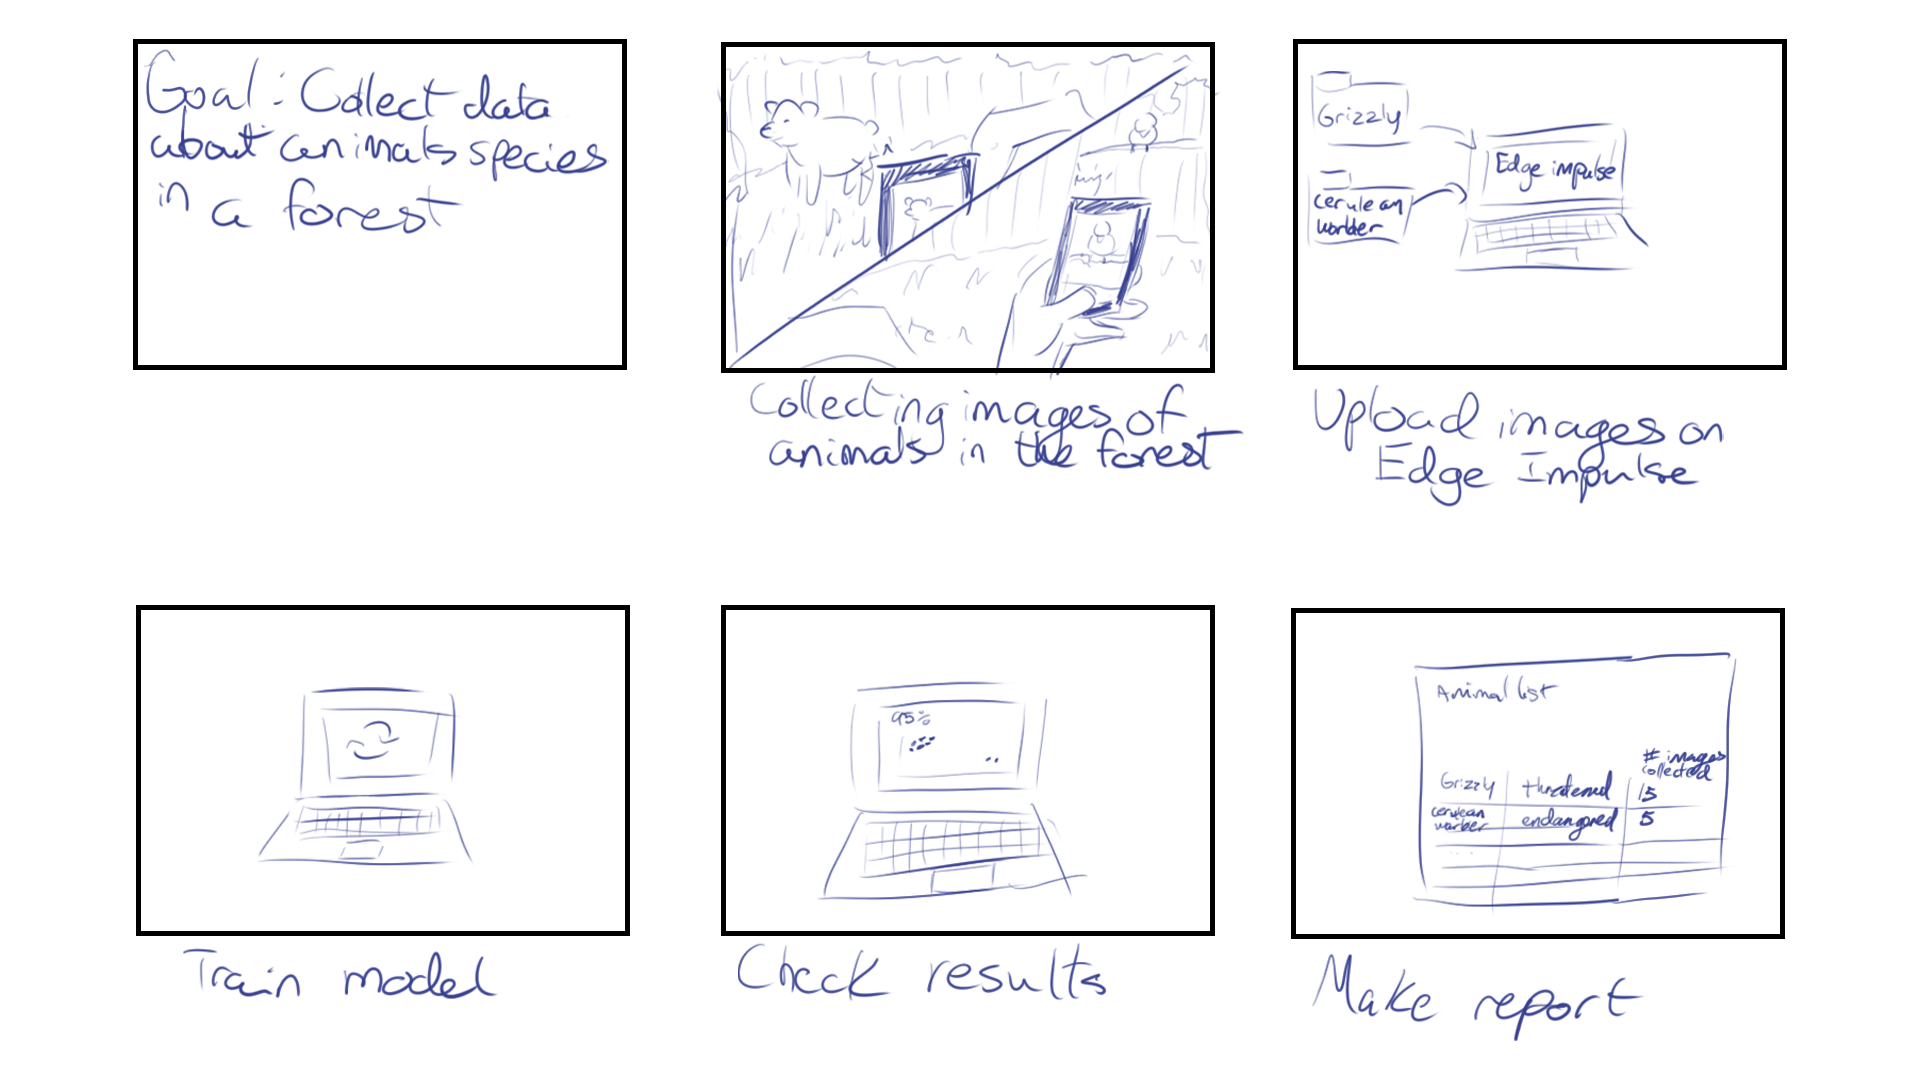 Goal: Collect data
about animals species
in a forest
Collecting images of
animals in the forest
Grizzly
cerulean
warbler
Edge impulse
Upload images on
Edge Impulse
Train model
95%
Check results
Animal list
# images
collected
Grizzly threatened 15
cerulean
warbler endangered 5
Make report